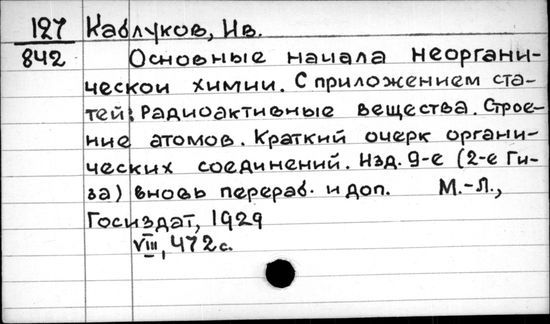 127 Каблуков, Ив.
842 Основные начала неоргани-
ческой химии. С приложением ста-
тей: Радиоактивные вещества. Строе-
ние атомов. Краткий очерк органи-
ческих соединений. Изд. 9-е (2-е Ги-
за) вновь перераб. и доп. М.-Л.,
Госиздат, 1929
VIII, 472 с.